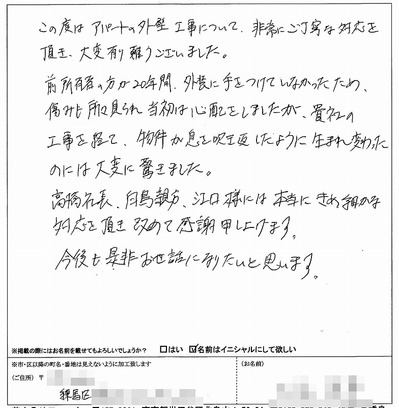 この度はアパートの外壁工事について、非常にご丁寧な対応を
頂き、大変有り難うございました。
前所有者の方が20年間、外装に手をつけていなかったため、
傷みも所々見られ当初は心配をしましたが、貴社の
工事を経て、物件が息を吹き返したように生まれ変わった
のには大変に驚きました。
高橋社長、白鳥親方、江口様には本当にきめ細かな
対応を頂き改めて感謝申し上げます。
今後も是非お世話になりたいと思います。
※掲載の際にはお名前を載せてもよろしいでしょうか? □はい ☑名前はイニシャルにして欲しい
※市・区以降の町名・番地は見えないように加工致します
(ご住所) 〒
(お名前)
練馬区